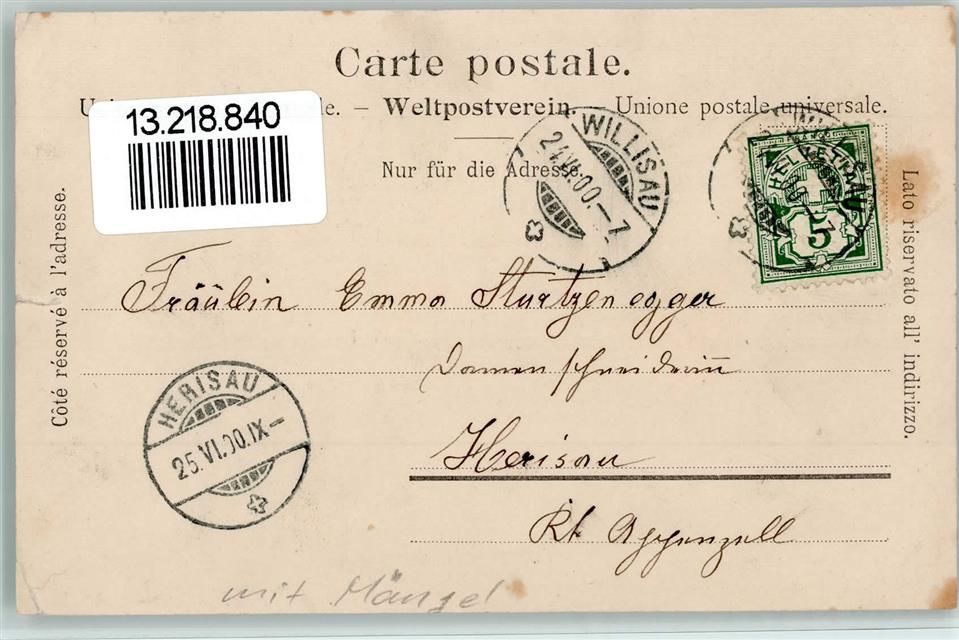 Carte postale.
13.218.840
Weltpostverein. Unione postale universale.
Nur für die Adresse.
WILLISAU
24.VI.00.–7
WILLISAU
HELVETIA
5
Côté réservé à l'adresse.
Lato riservato all' indirizzo.
Fräulein Emma Sturtzenegger
Damenschneiderin
HERISAU
25.VI.00.IX–
Herisau
Kt. Appenzell
mit Mängel